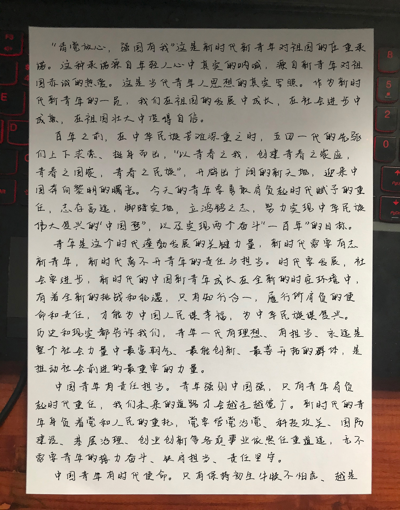 "请党放心，强国有我"这是新时代新青年对祖国的庄重承
诺。这种承诺源自年轻人心中真实的呐喊，源自新青年对祖
国赤诚的热爱。这是当代青年人思想的真实写照。作为新时
代新青年的一员，我们在祖国的发展中成长，在社会进步中
成熟，在祖国壮大中慢慢自信。
百年之前，在中华民族苦难深重之时，五四一代的先驱
们上下求索、挺身而出，"以青春之我，创建青春之家庭，
青春之国家，青春之民族"，开辟出广阔的新天地，迎来中
国奔向黎明的曙光。今天的青年要勇敢肩负起时代赋予的重
任，志存高远，脚踏实地，立鸿鹄之志，努力实现中华民族
伟大复兴的"中国梦"，以及实现两个奋斗"一百年"的目标。
青年是这个时代蓬勃发展的关键力量，新时代需要有志
新青年，新时代离不开青年的责任与担当。时代要发展，社
会要进步，新时代的中国新青年成长在全新的时空环境中，
有着全新的挑战和机遇，只有知行合一，履行所肩负的使
命和责任，才能为中国人民谋幸福，为中华民族谋复兴。
历史和现实都告诉我们，青年一代有理想、有担当，永远是
整个社会力量中最富朝气、最能创新、最善开拓的群体，是
推动社会前进的最重要的力量。
中国青年有责任担当。青年强则中国强，只有青年肩负
起时代重任，我们未来的道路才会越走越宽广。新时代的青
年身负着党和人民的重托，党要管党治党、科技攻关、国防
建设、基层治理、创业创新等各项事业依然任重道远，无不
需要青年的接力奋斗、铁肩担当、责任坚守。
中国青年有时代使命。只有保持初生牛犊不怕虎、越是